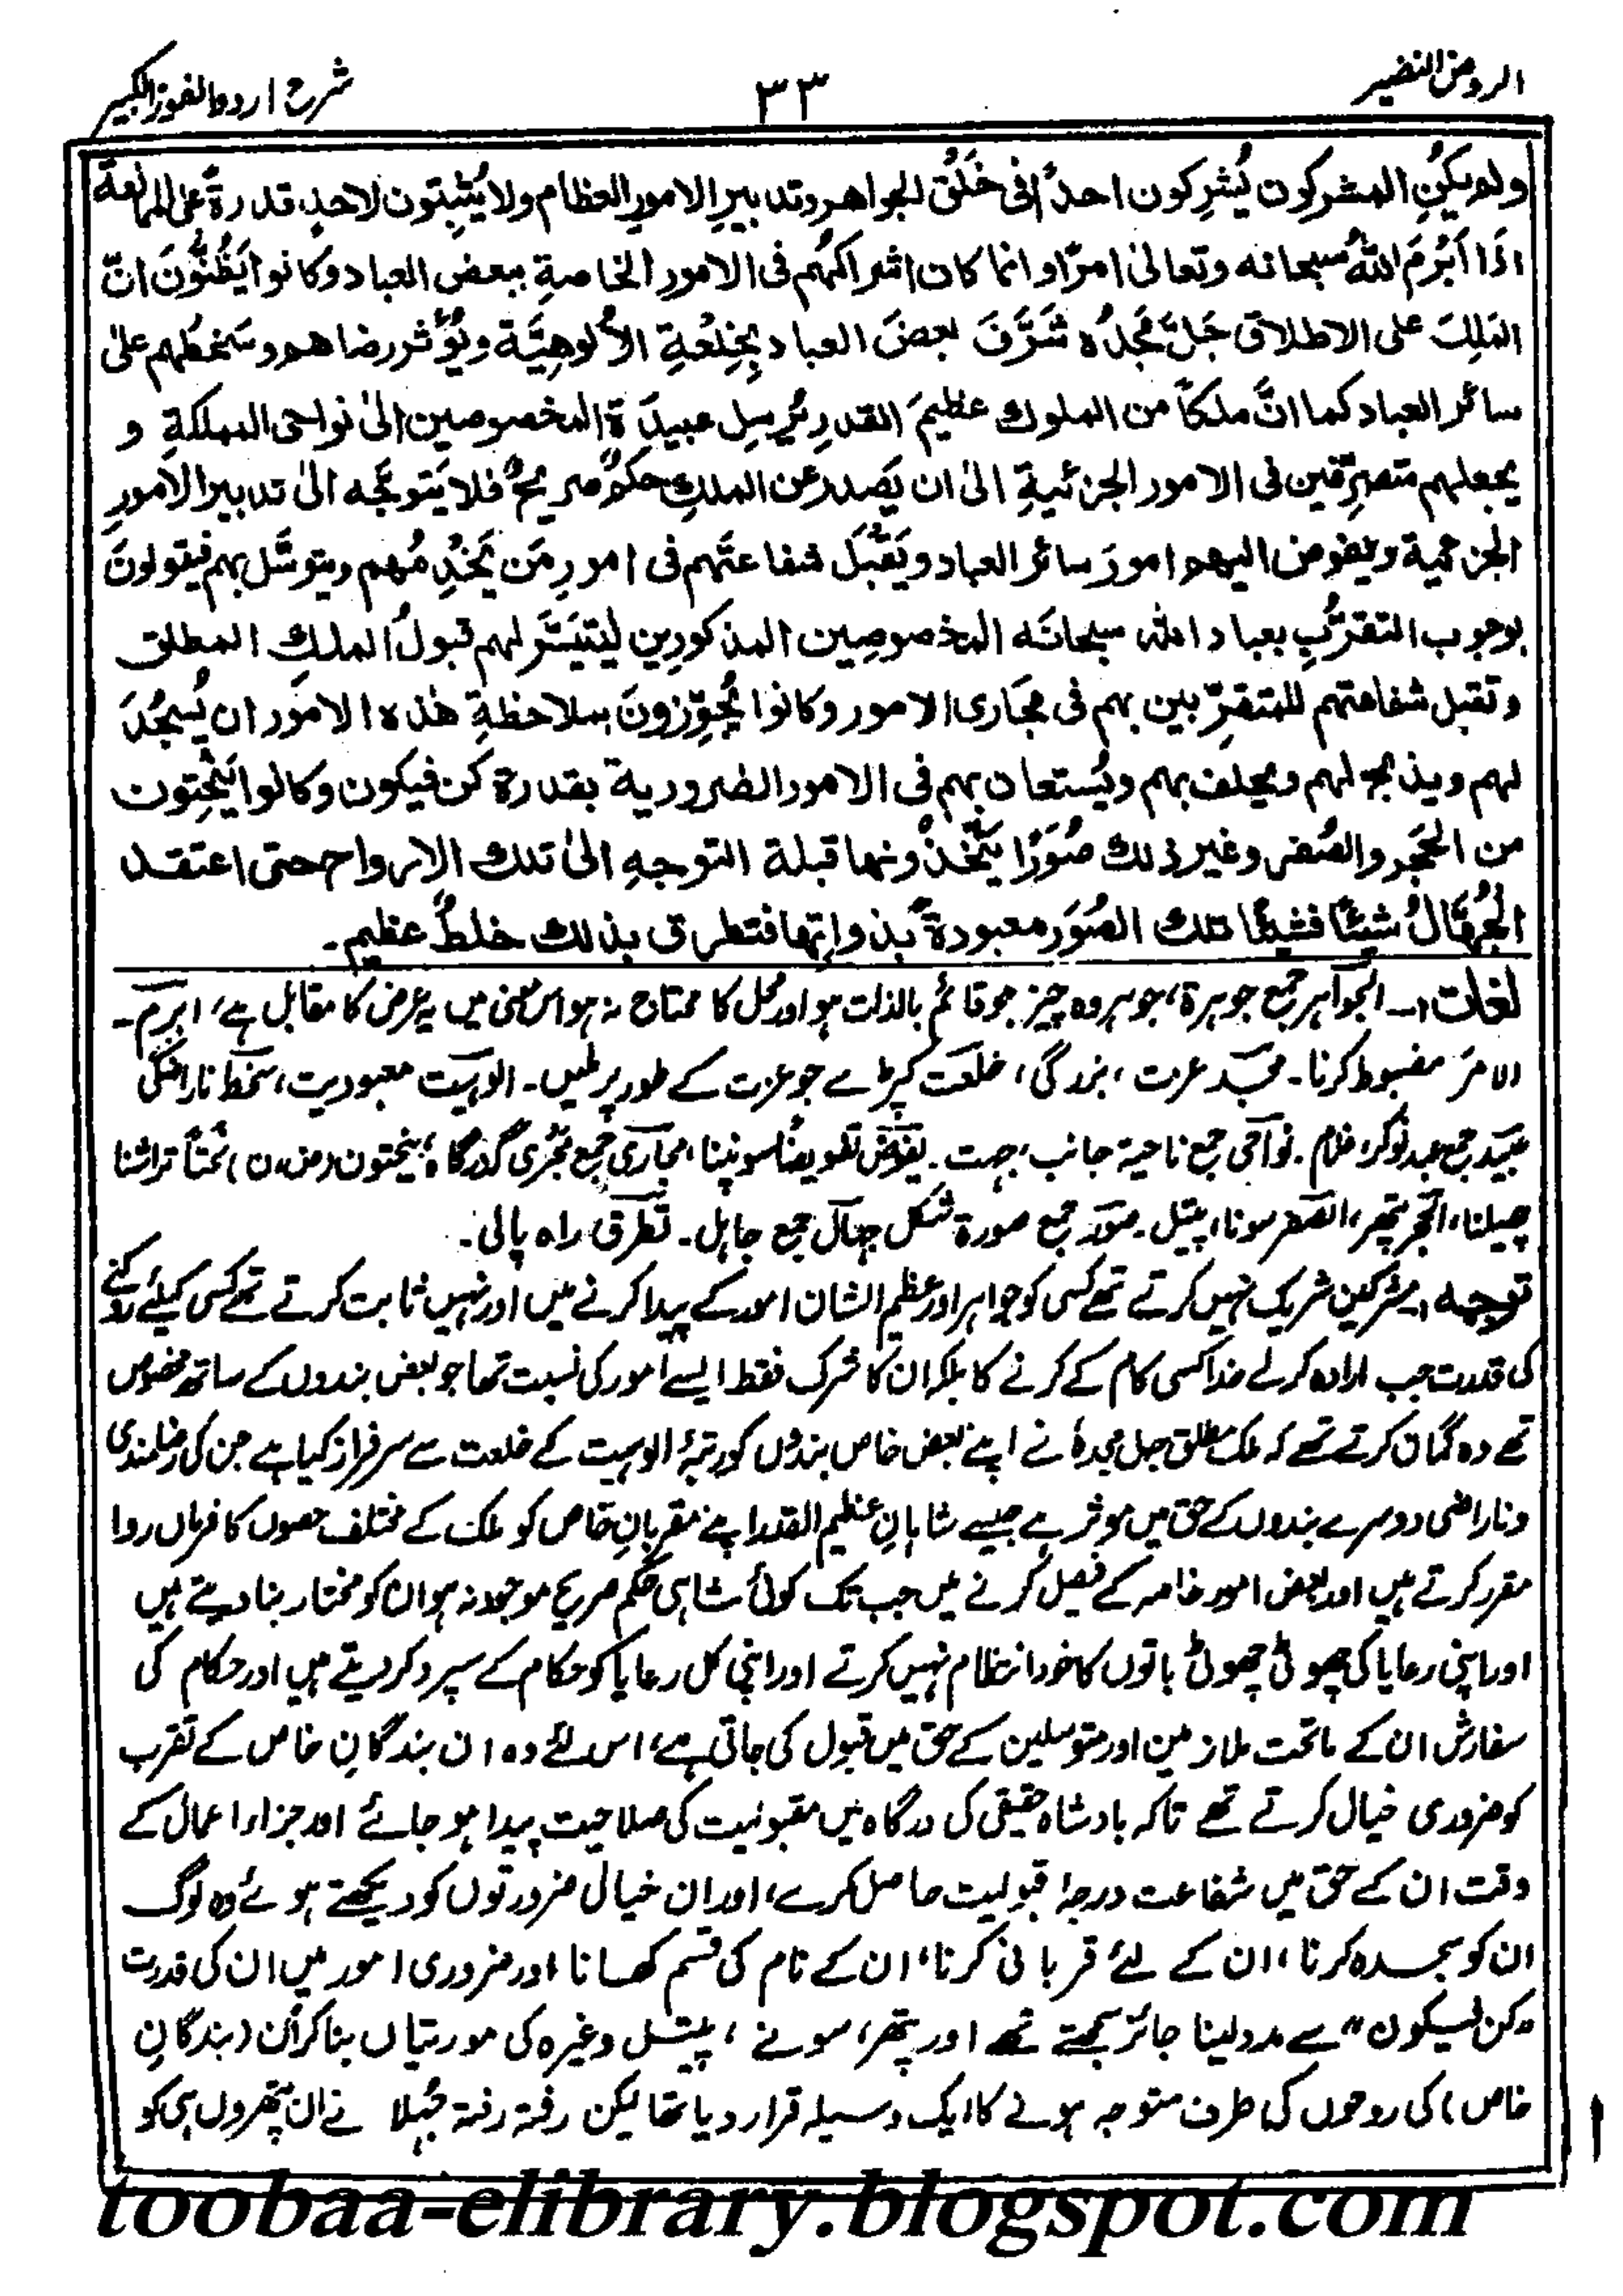 الروض النضير
۳۳
شرح اردو الفوز الکبیر
ولم یکنِ المشرکون یُشرِکون احدًا فی خَلْقِ الجواهر وتدبیرِ الامورِ العظام ولا یُثبِتون لاحدٍ قدرةً علی الممانعة
اذا اَبْرَمَ اللّٰهُ سبحانه وتعالیٰ امرًا وانما کان اشراکهم فی الامور الخاصةِ ببعض العباد وکانوا یَظُنُّونَ انّ
المَلِکَ علی الاطلاق جَلَّ مَجْدُه شَرَّفَ بعضَ العباد بِخِلْعَةِ الاُلوهِیَّة ویُؤَثِّر رضاهم وسَخَطُهم علیٰ
سائر العباد کما انَّ ملکاً من الملوك عظیمَ القدرِ یُرسِل عبیدَهَ المخصوصین الیٰ نواحی المملکةِ و
یجعلهم متصرِّفین فی الامور الجزئیةِ الیٰ ان یَصدرَ عن الملكِ حکمٌ صریحٌ فلا یَتوجَّه الیٰ تدبیر الامورِ
الجزئیة ویفوض الیهم امورَ سائر العباد ویَقْبَل شفاعتَهم فی امورِ مَن یَخْدِمُهم ویتوسَّل بهم فیقولونَ
بوجوب التقرُّبِ بعباد اللّٰه سبحانَه المخصوصِین المذکورِین لِیتیسَّر لهم قبولُ الملكِ المطلق
وتقبل شفاعتهم للمتقرِّبین بهم فی مجَاری الامور وکانوا یُجوِّزونَ بملاحظةِ هٰذه الامور ان یُسجُدَ
لهم ویذبح لهم ویحلف بهم ویُستعان بهم فی الامور الضروریة بقدرة کن فیکون وکانوا یَنْحِتون
من الحَجَر والصُفر وغیر ذلك صُوَرًا یَتَّخذُونها قبلة التوجهِ الیٰ تلك الارواح حتی اعتقد
الجُهَّالُ شیئًا فشیئًا تلك الصُّوَر معبودةً بذواتِها فتطرق بذلك خلطٌ عظیم۔
لغات:۔ الجواہر جمع جوہرۃ، جوہر وہ چیز جو قائم بالذات ہو اور محل کا محتاج نہ ہو اس معنی میں یہ عرض کا مقابل ہے، ابرم۔
الامرَ مضبوط کرنا۔ مجد عزت، بزرگی، خلعت کپڑے جو عزت کے طور پر ملیں۔ الوہیت معبودیت، سخط ناراضگی
عبید جمع عبد نوکر، غلام۔ نواحی جمع ناحیۃ جانب، جہت۔ یفوّض تفویضًا سونپنا، مجاری جمع مجریٰ گذرگاہ، ینحتون (ض، ن) نحتًا تراشنا
چھیلنا، الحجر پتھر، الصفر سونا، پیتل۔ صور جمع صورۃ شکل جہال جمع جاہل۔ تطرق راہ پالی۔
توجہ: مشرکین شریک نہیں کرتے تھے کسی کو جواہر اور عظیم الشان امور کے پیدا کرنے میں اور نہیں ثابت کرتے تھے کسی کیلئے روکنے
کی قدرت جب ارادہ کر لے خدا کسی کام کے کرنے کا بلکہ ان کا شرک فقط ایسے امور کی نسبت تھا جو بعض بندوں کے ساتھ مخصوص
تھے وہ گمان کرتے تھے کہ ملک مطلق جل مجدہٗ نے اپنے بعض خاص بندوں کو رتبۂ الوہیت کے خلعت سے سرفراز کیا ہے جن کی رضامندی
وناراضی دوسرے بندوں کے حق میں موثر ہے جیسے شاہانِ عظیم القدر اپنے مقربانِ خاص کو ملک کے مختلف حصوں کا فرماں روا
مقرر کرتے ہیں اور بعض امور خاصہ کے فیصل کرنے میں جب تک کوئی شاہی حکم صریح موجود نہ ہو ان کو مختار بنا دیتے ہیں
اور اپنی رعایا کی چھوٹی چھوٹی باتوں کا خود انتظام نہیں کرتے اور اپنی کل رعایا کو حکام کے سپرد کر دیتے ہیں اور حکام کی
سفارش ان کے ماتحت ملازمین اور متوسلین کے حق میں قبول کی جاتی ہے، اس لئے وہ ان بندگانِ خاص کے تقرب
کو ضروری خیال کرتے تھے تاکہ بادشاہ حقیقی کی درگاہ میں مقبولیت کی صلاحیت پیدا ہو جائے اور جزاء اعمال کے
وقت ان کے حق میں شفاعت درجۂ قبولیت حاصل کرے، اور ان خیالی ضرورتوں کو دیکھتے ہوئے وہ لوگ
ان کو سجدہ کرنا، ان کے لئے قربانی کرنا، ان کے نام کی قسم کھانا اور ضروری امور میں ان کی قدرت
"کن فیکون" سے مدد لینا جائز سمجھتے تھے اور پتھر، سونے، پیتل وغیرہ کی مورتیاں بنا کر اُن (بندگانِ
خاص) کی روحوں کی طرف متوجہ ہونے کا ایک وسیلہ قرار دیا تھا لیکن رفتہ رفتہ جُہلا نے ان پتھروں ہی کو
toobaa-elibrary.blogspot.com